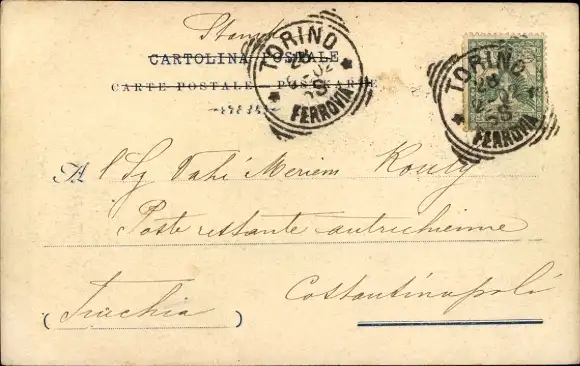 Stampe
CARTOLINA POSTALE
CARTE POSTALE - POSTKARTE
TORINO
28
02
8S
FERROVIA
TORINO
28
02
8S
FERROVIA
A l Sg Vahè Meriem Kouly
Poste restante autrichienne
Costantinopoli
(Turchia)